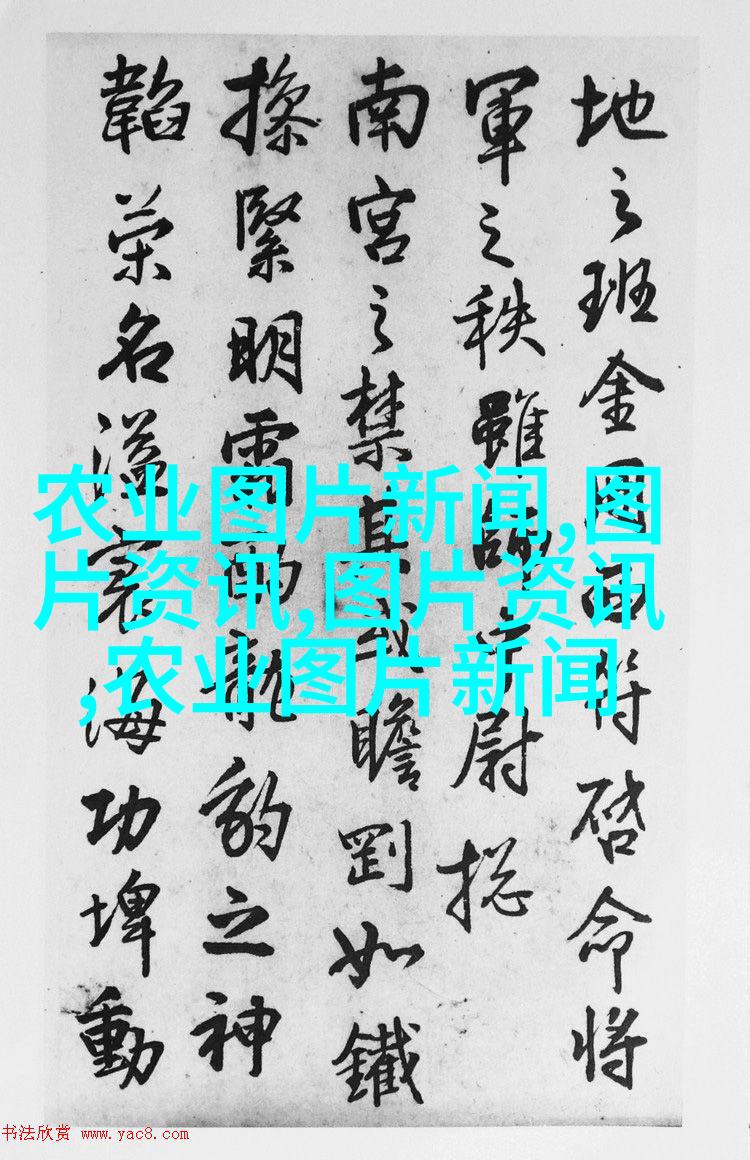 地之班金西符啓命将
軍之秩雖尉捴
南宫之禁其瞻剛如鐵
操緊明霜龍豹之神
韜榮名溢寰海功埤動
农业图片新闻,图
片资讯,图片资讯
,农业图片新闻
书法欣赏 www.yac8.com